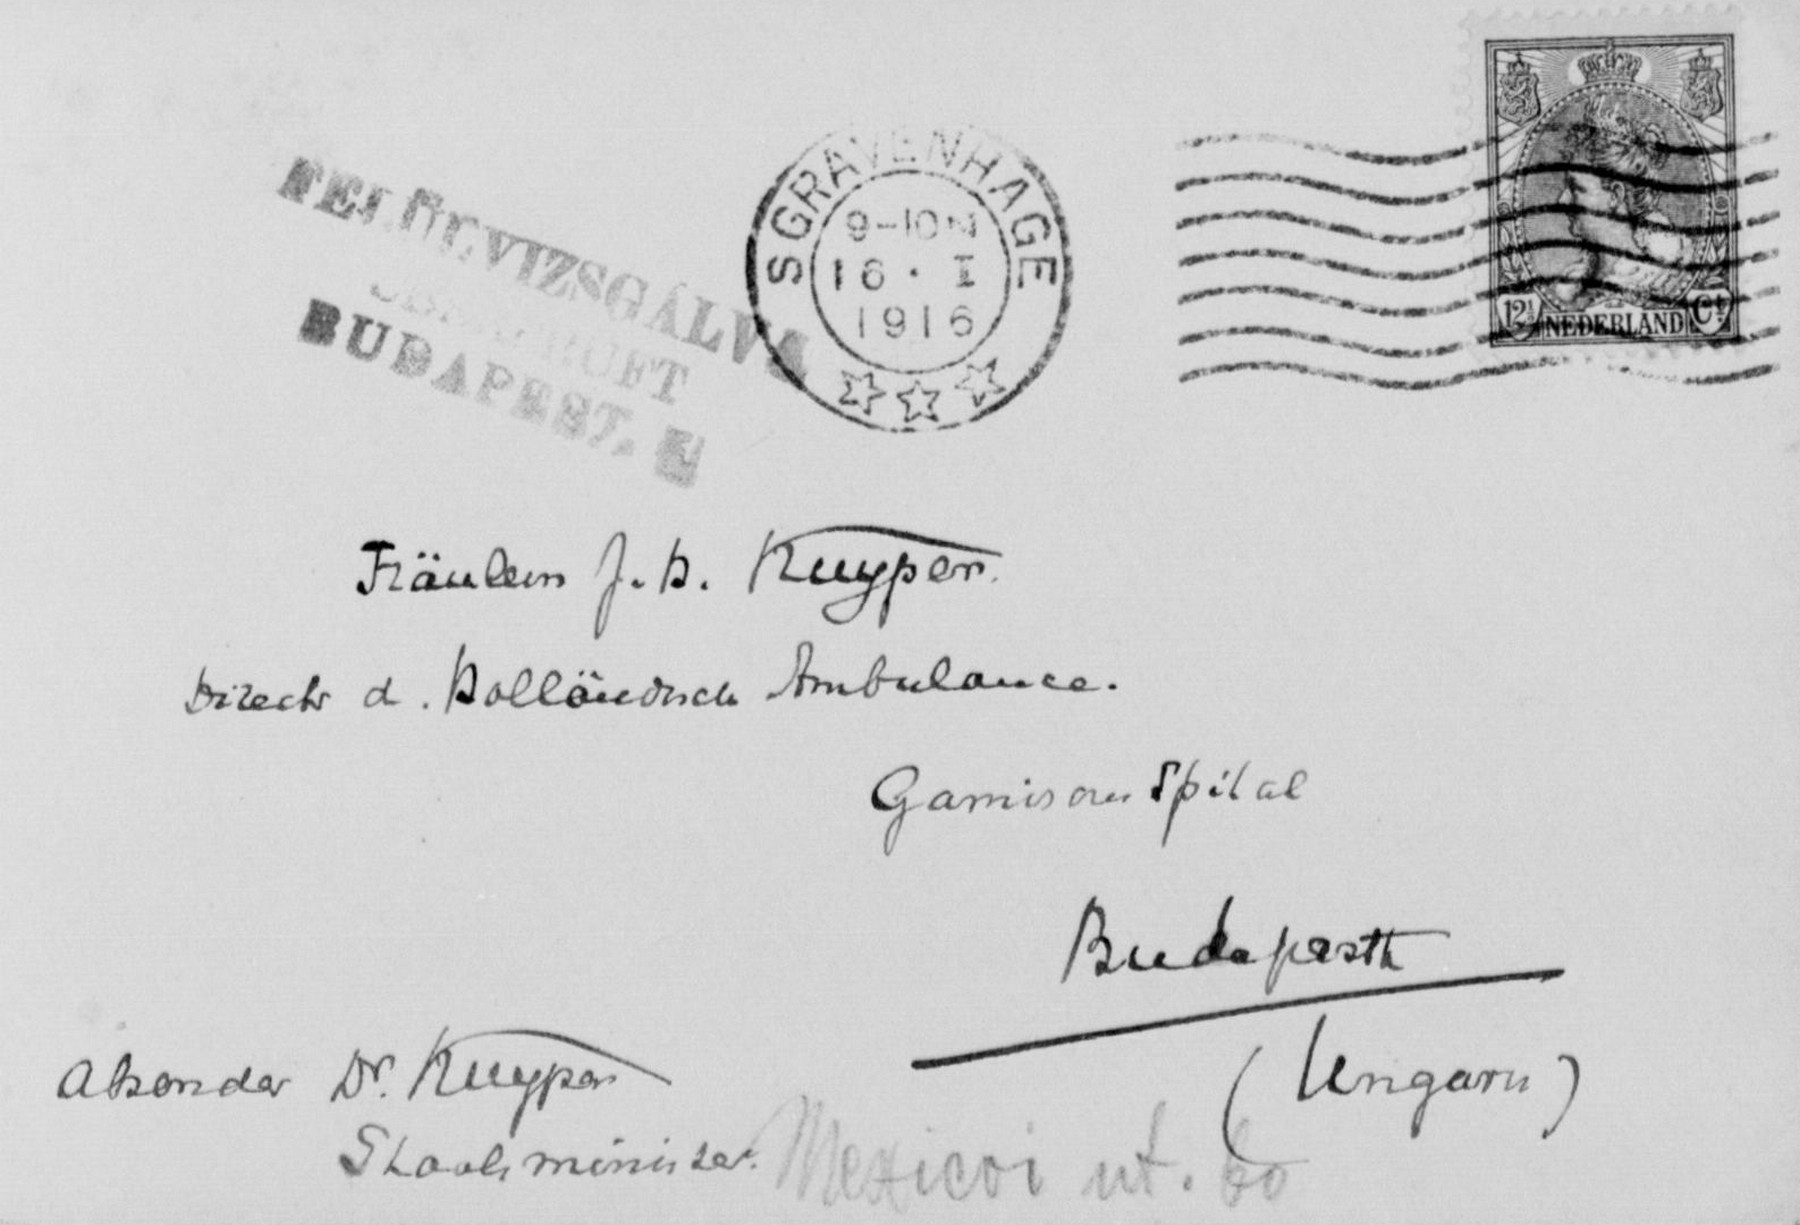 FELÜLVIZSGÁLVA
ÜBERPRÜFT
BUDAPEST.
SGRAVENHAGE
9-10 N
16 · I
1916
12½ NEDERLAND Ct
Fräulein J. H. Kuyper.
Directr d. Holländisch Ambulance.
Garnison Spital
Budapesth
(Ungarn)
Absender Dr. Kuyper
Staatsminister.
Mexicoi ut. 60